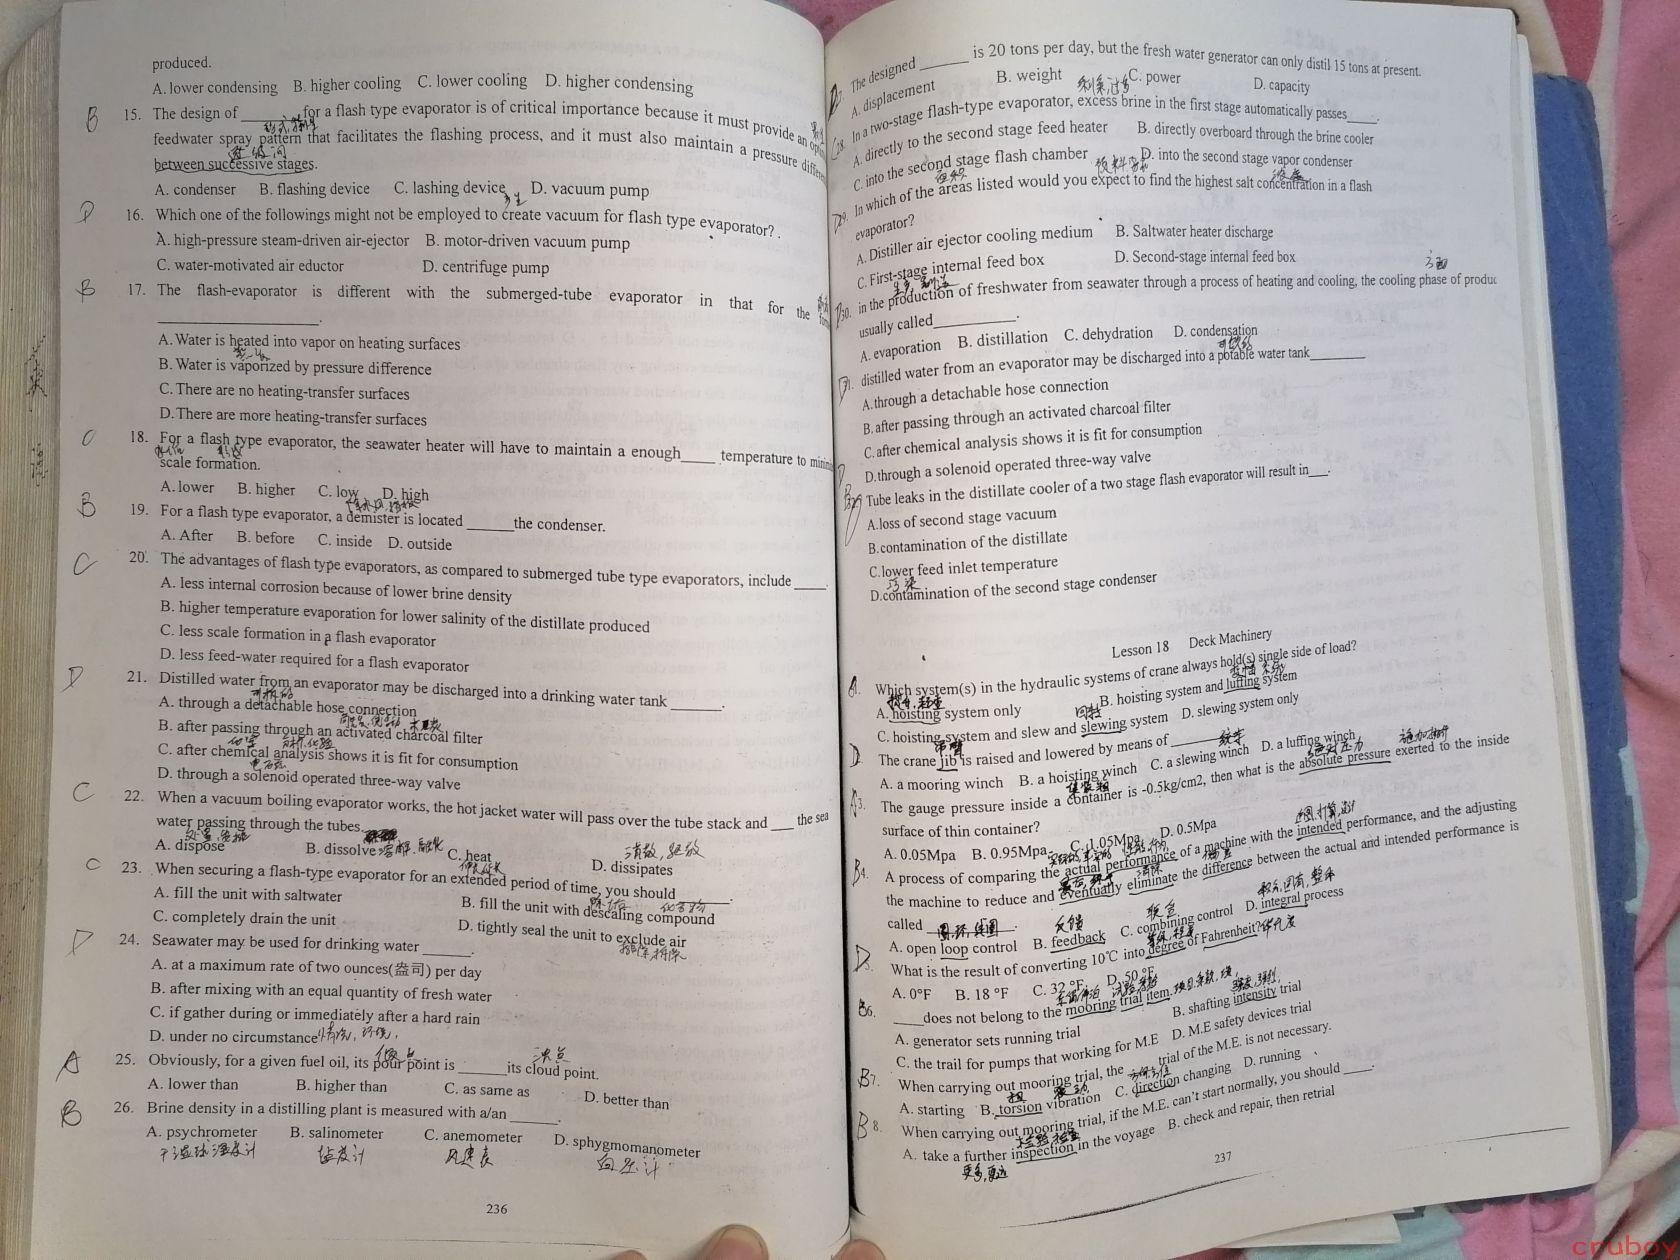 produced.
A. lower condensing B. higher cooling C. lower cooling D. higher condensing
B 15. The design of ______ for a flash type evaporator is of critical importance because it must provide an
feedwater spray pattern that facilitates the flashing process, and it must also maintain a pressure
between successive stages.
A. condenser B. flashing device C. lashing device D. vacuum pump
D 16. Which one of the followings might not be employed to create vacuum for flash type evaporator? .
A. high-pressure steam-driven air-ejector B. motor-driven vacuum pump
C. water-motivated air eductor D. centrifuge pump
B 17. The flash-evaporator is different with the submerged-tube evaporator in that for the
______.
A. Water is heated into vapor on heating surfaces
B. Water is vaporized by pressure difference
C. There are no heating-transfer surfaces
D. There are more heating-transfer surfaces
C 18. For a flash type evaporator, the seawater heater will have to maintain a enough____ temperature to
scale formation.
A. lower B. higher C. low D. high
B 19. For a flash type evaporator, a demister is located ______the condenser.
A. After B. before C. inside D. outside
C 20. The advantages of flash type evaporators, as compared to submerged tube type evaporators, include ____.
A. less internal corrosion because of lower brine density
B. higher temperature evaporation for lower salinity of the distillate produced
C. less scale formation in a flash evaporator
D. less feed-water required for a flash evaporator
D 21. Distilled water from an evaporator may be discharged into a drinking water tank ______.
可拆的
A. through a detachable hose connection
B. after passing through an activated charcoal filter
化学 分析,化验
C. after chemical analysis shows it is fit for consumption
D. through a solenoid operated three-way valve
C 22. When a vacuum boiling evaporator works, the hot jacket water will pass over the tube stack and ___ the sea
water passing through the tubes.
A. dispose B. dissolve 溶解 C. heat D. dissipates 消散
C 23. When securing a flash-evaporator for an extended period of time, you should ______.
A. fill the unit with saltwater B. fill the unit with descaling compound
C. completely drain the unit D. tightly seal the unit to exclude air
D 24. Seawater may be used for drinking water ______.
A. at a maximum rate of two ounces(盎司) per day
B. after mixing with an equal quantity of fresh water
C. if gather during or immediately after a hard rain
D. under no circumstance 情况, 环境,
A 25. Obviously, for a given fuel oil, its pour point is ______its cloud point.
A. lower than B. higher than C. as same as D. better than
B 26. Brine density in a distilling plant is measured with a/an ______.
A. psychrometer B. salinometer C. anemometer D. sphygmomanometer
干湿球湿度计 盐度计 风速表 血压计
236
The designed ______ is 20 tons per day, but the fresh water generator can only distil 15 tons at present.
A. displacement B. weight C. power D. capacity
28. In a two-stage flash-type evaporator, excess brine in the first stage automatically passes____.
A. directly to the second stage feed heater B. directly overboard through the brine cooler
C. into the second stage flash chamber D. into the second stage vapor condenser
29. In which of the areas listed would you expect to find the highest salt concentration in a flash
evaporator?
A. Distiller air ejector cooling medium B. Saltwater heater discharge
C. First-stage internal feed box D. Second-stage internal feed box
30. in the production of freshwater from seawater through a process of heating and cooling, the cooling phase of
usually called__________.
A. evaporation B. distillation C. dehydration D. condensation
31. distilled water from an evaporator may be discharged into a potable water tank______
A. through a detachable hose connection
B. after passing through an activated charcoal filter
C. after chemical analysis shows it is fit for consumption
D. through a solenoid operated three-way valve
Tube leaks in the distillate cooler of a two stage flash evaporator will result in___.
A. loss of second stage vacuum
B. contamination of the distillate
C. lower feed inlet temperature
污染
D. contamination of the second stage condenser
Lesson 18 Deck Machinery
Which system(s) in the hydraulic systems of crane always hold(s) single side of load?
A. hoisting system only B. hoisting system and luffing system
C. hoisting system and slew and slewing system D. slewing system only
The crane jib is raised and lowered by means of ______
A. a mooring winch B. a hoisting winch C. a slewing winch D. a luffing winch
3. The gauge pressure inside a container is -0.5kg/cm2, then what is the absolute pressure exerted to the inside
surface of thin container?
A. 0.05Mpa B. 0.95Mpa C. 1.05Mpa D. 0.5Mpa
B 4. A process of comparing the actual performance of a machine with the intended performance, and the adjusting
the machine to reduce and eventually eliminate the difference between the actual and intended performance is
called ______.
A. open loop control B. feedback C. combining control D. integral process
D 5. What is the result of converting 10℃ into degree of Fahrenheit? 华氏度
A. 0°F B. 18 °F C. 32 °F D. 50 °F
B 6. ____does not belong to the mooring trial item.
A. generator sets running trial B. shafting intensity trial
C. the trail for pumps that working for M.E D. M.E safety devices trial
B 7. When carrying out mooring trial, the ____ trial of the M.E. is not necessary.
A. starting B. torsion vibration C. direction changing D. running
B 8. When carrying out mooring trial, if the M.E. can't start normally, you should ____.
A. take a further inspection in the voyage B. check and repair, then retrial
237
cruboy